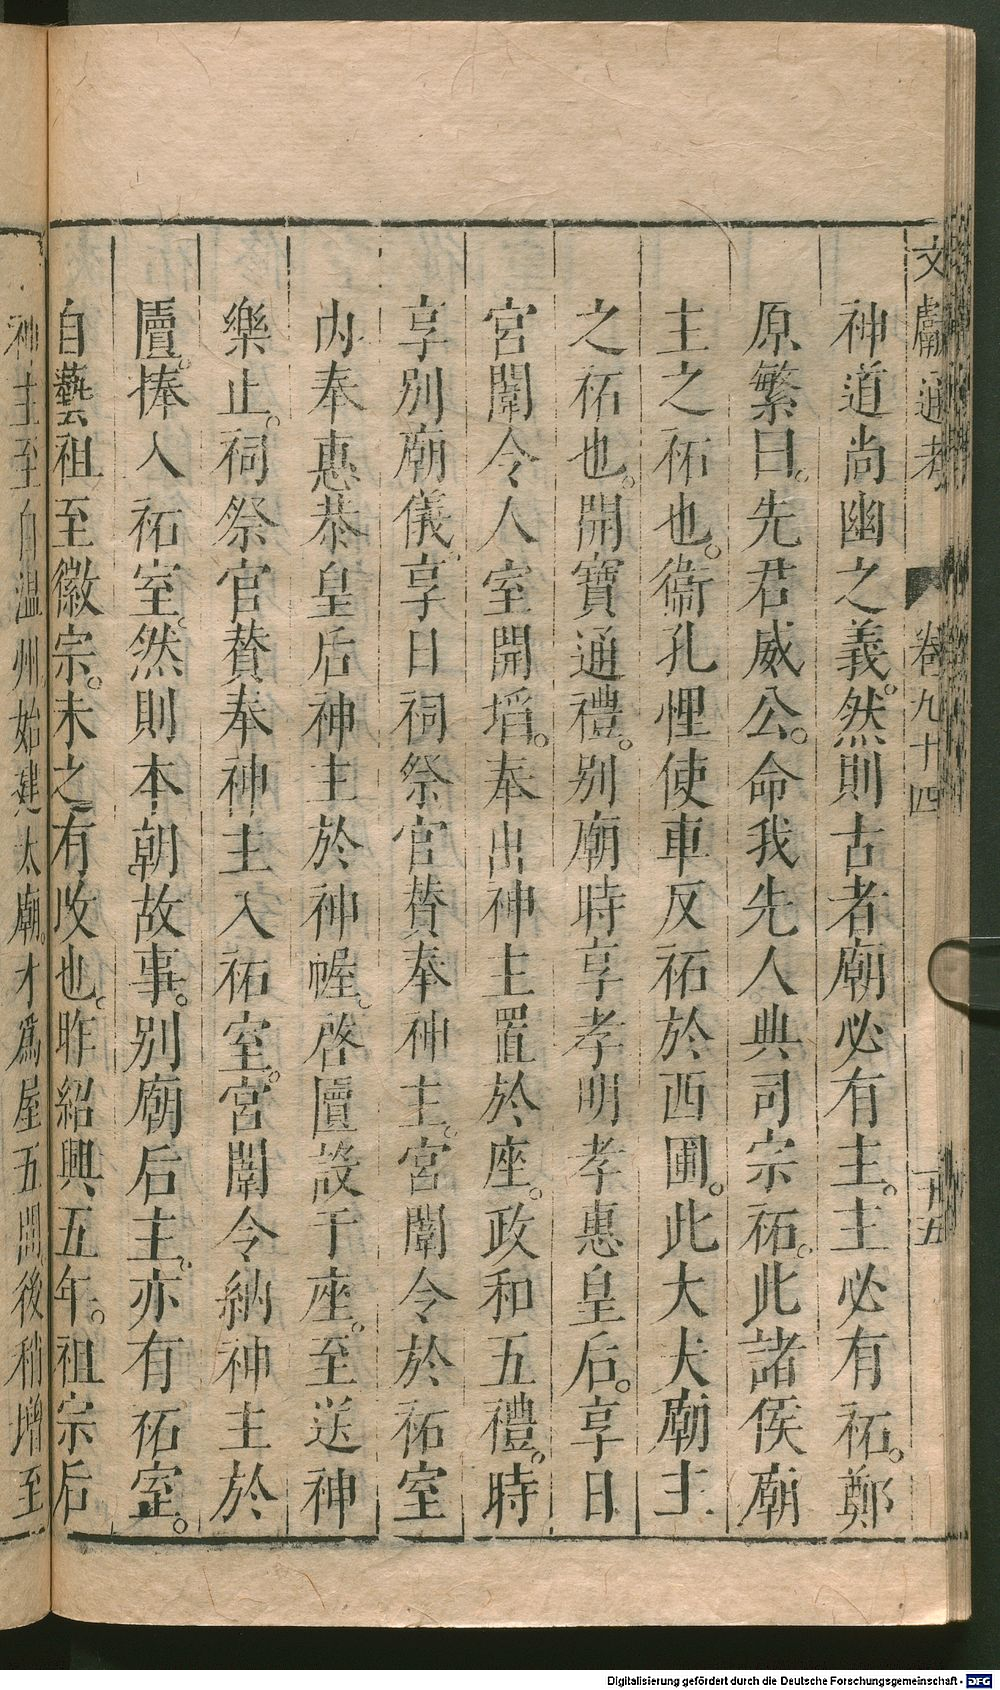 文獻通考 卷九十四 十五
神道尚幽之義。然則古者廟必有主。主必有祏。鄭
原繁曰。先君威公。命我先人。典司宗祏。此諸侯廟
主之祏也。衞孔悝使車反祏於西圃。此大夫廟主
之祏也。開寶通禮。別廟時享孝明孝惠皇后。享日
宮闈令入室開塪。奉出神主置於座。政和五禮。時
享別廟儀。享日祠祭官賛奉神主。宮闈令於祏室
内奉惠恭皇后神主於神幄。啓匵設于座。至送神
樂止。祠祭官賛奉神主入祏室。宮闈令納神主於
匵。捧入祏室。然則本朝故事。別廟后主。亦有祏室。
自藝祖至徽宗。未之有改也。昨紹興五年。祖宗后
神主至自温州始建太廟。才爲屋五間後稍增至
Digitalisierung gefördert durch die Deutsche Forschungsgemeinschaft - DFG